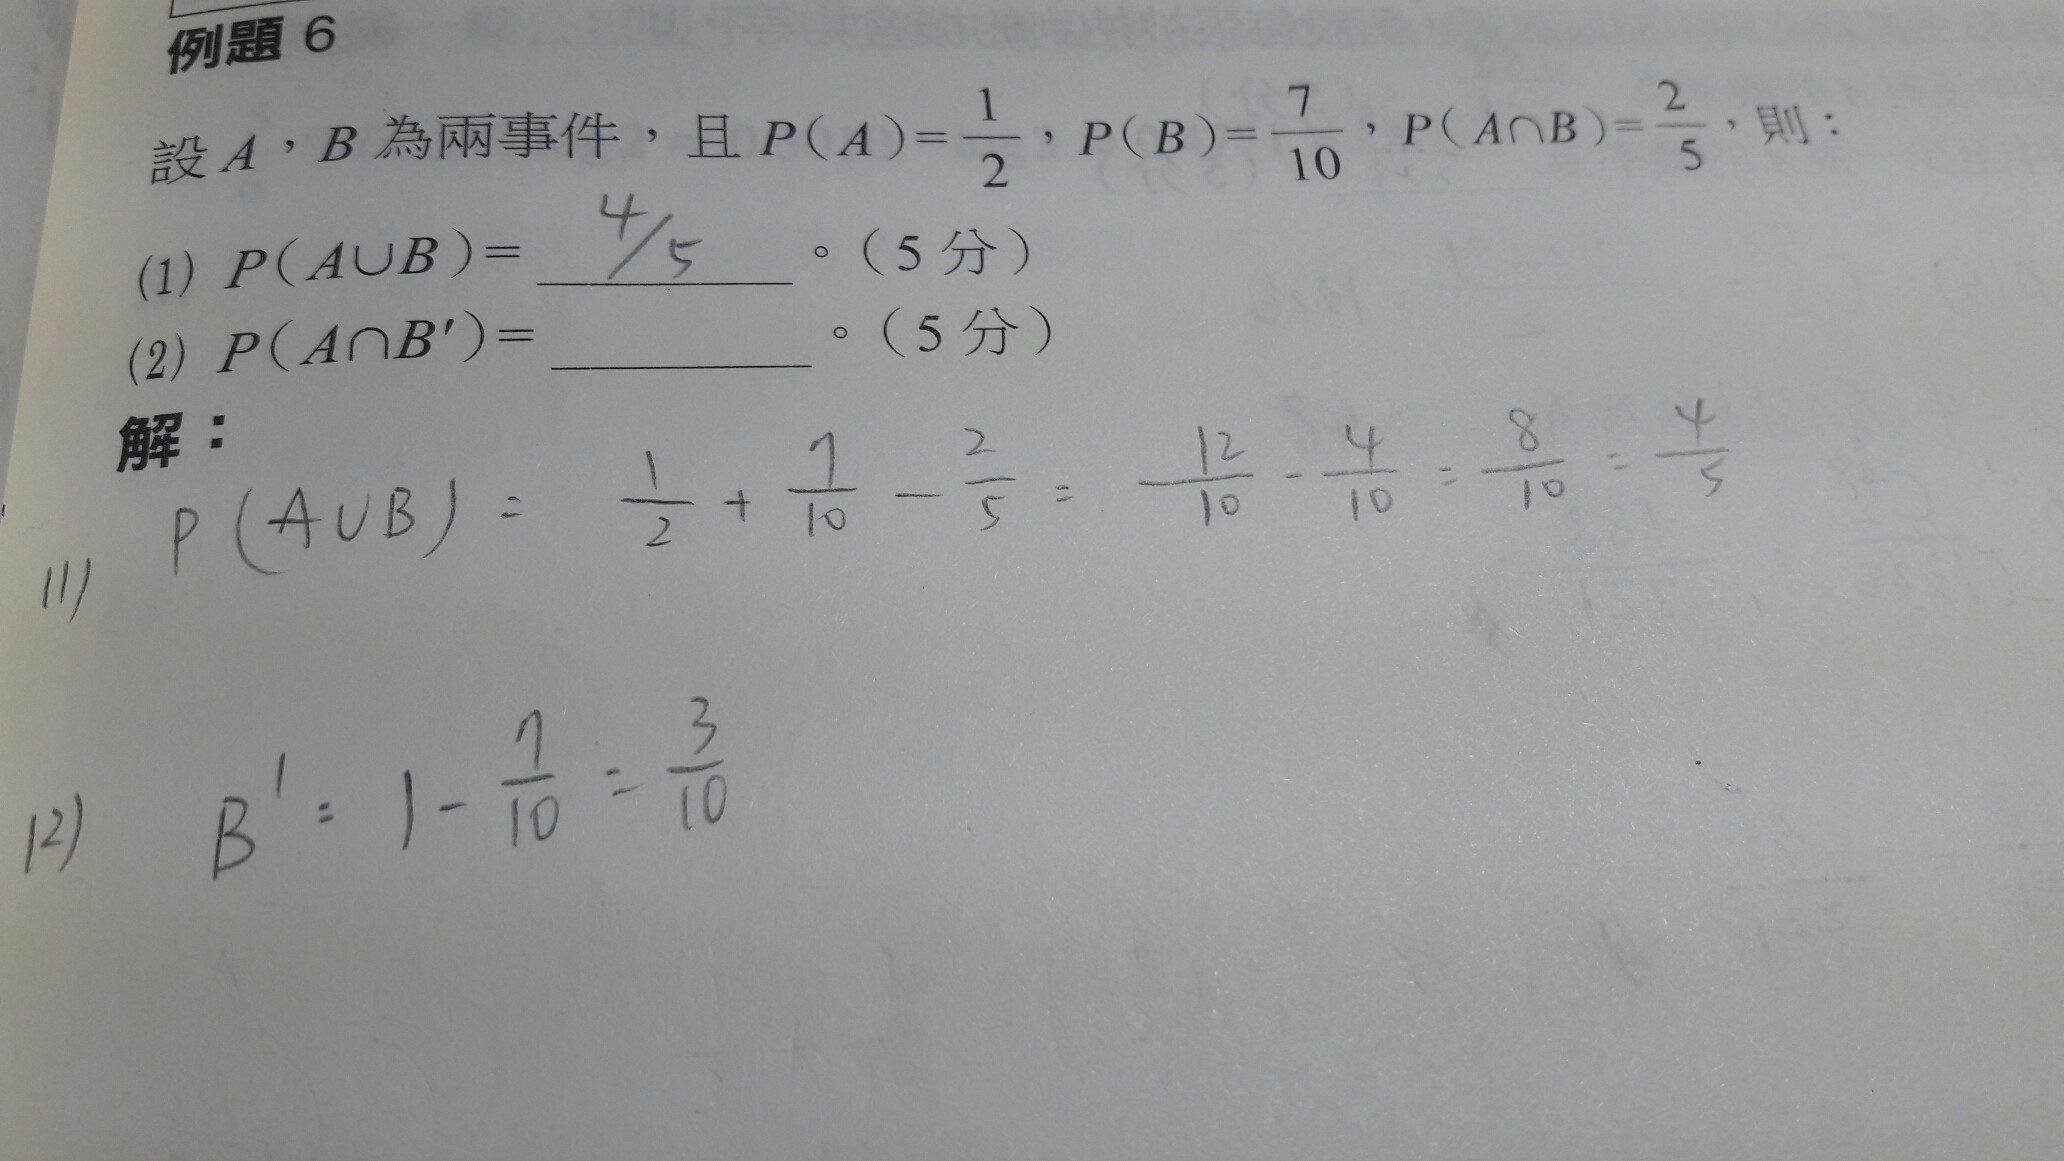 例題 6
設 A，B 為兩事件，且 P(A)=1/2，P(B)=7/10，P(A∩B)=2/5，則：
(1) P(A∪B)= 4/5 。(5 分)
(2) P(A∩B′)= ______ 。(5 分)
解：
(1) P(A∪B) = 1/2 + 7/10 - 2/5 = 12/10 - 4/10 = 8/10 = 4/5
(2) B′ = 1 - 7/10 = 3/10